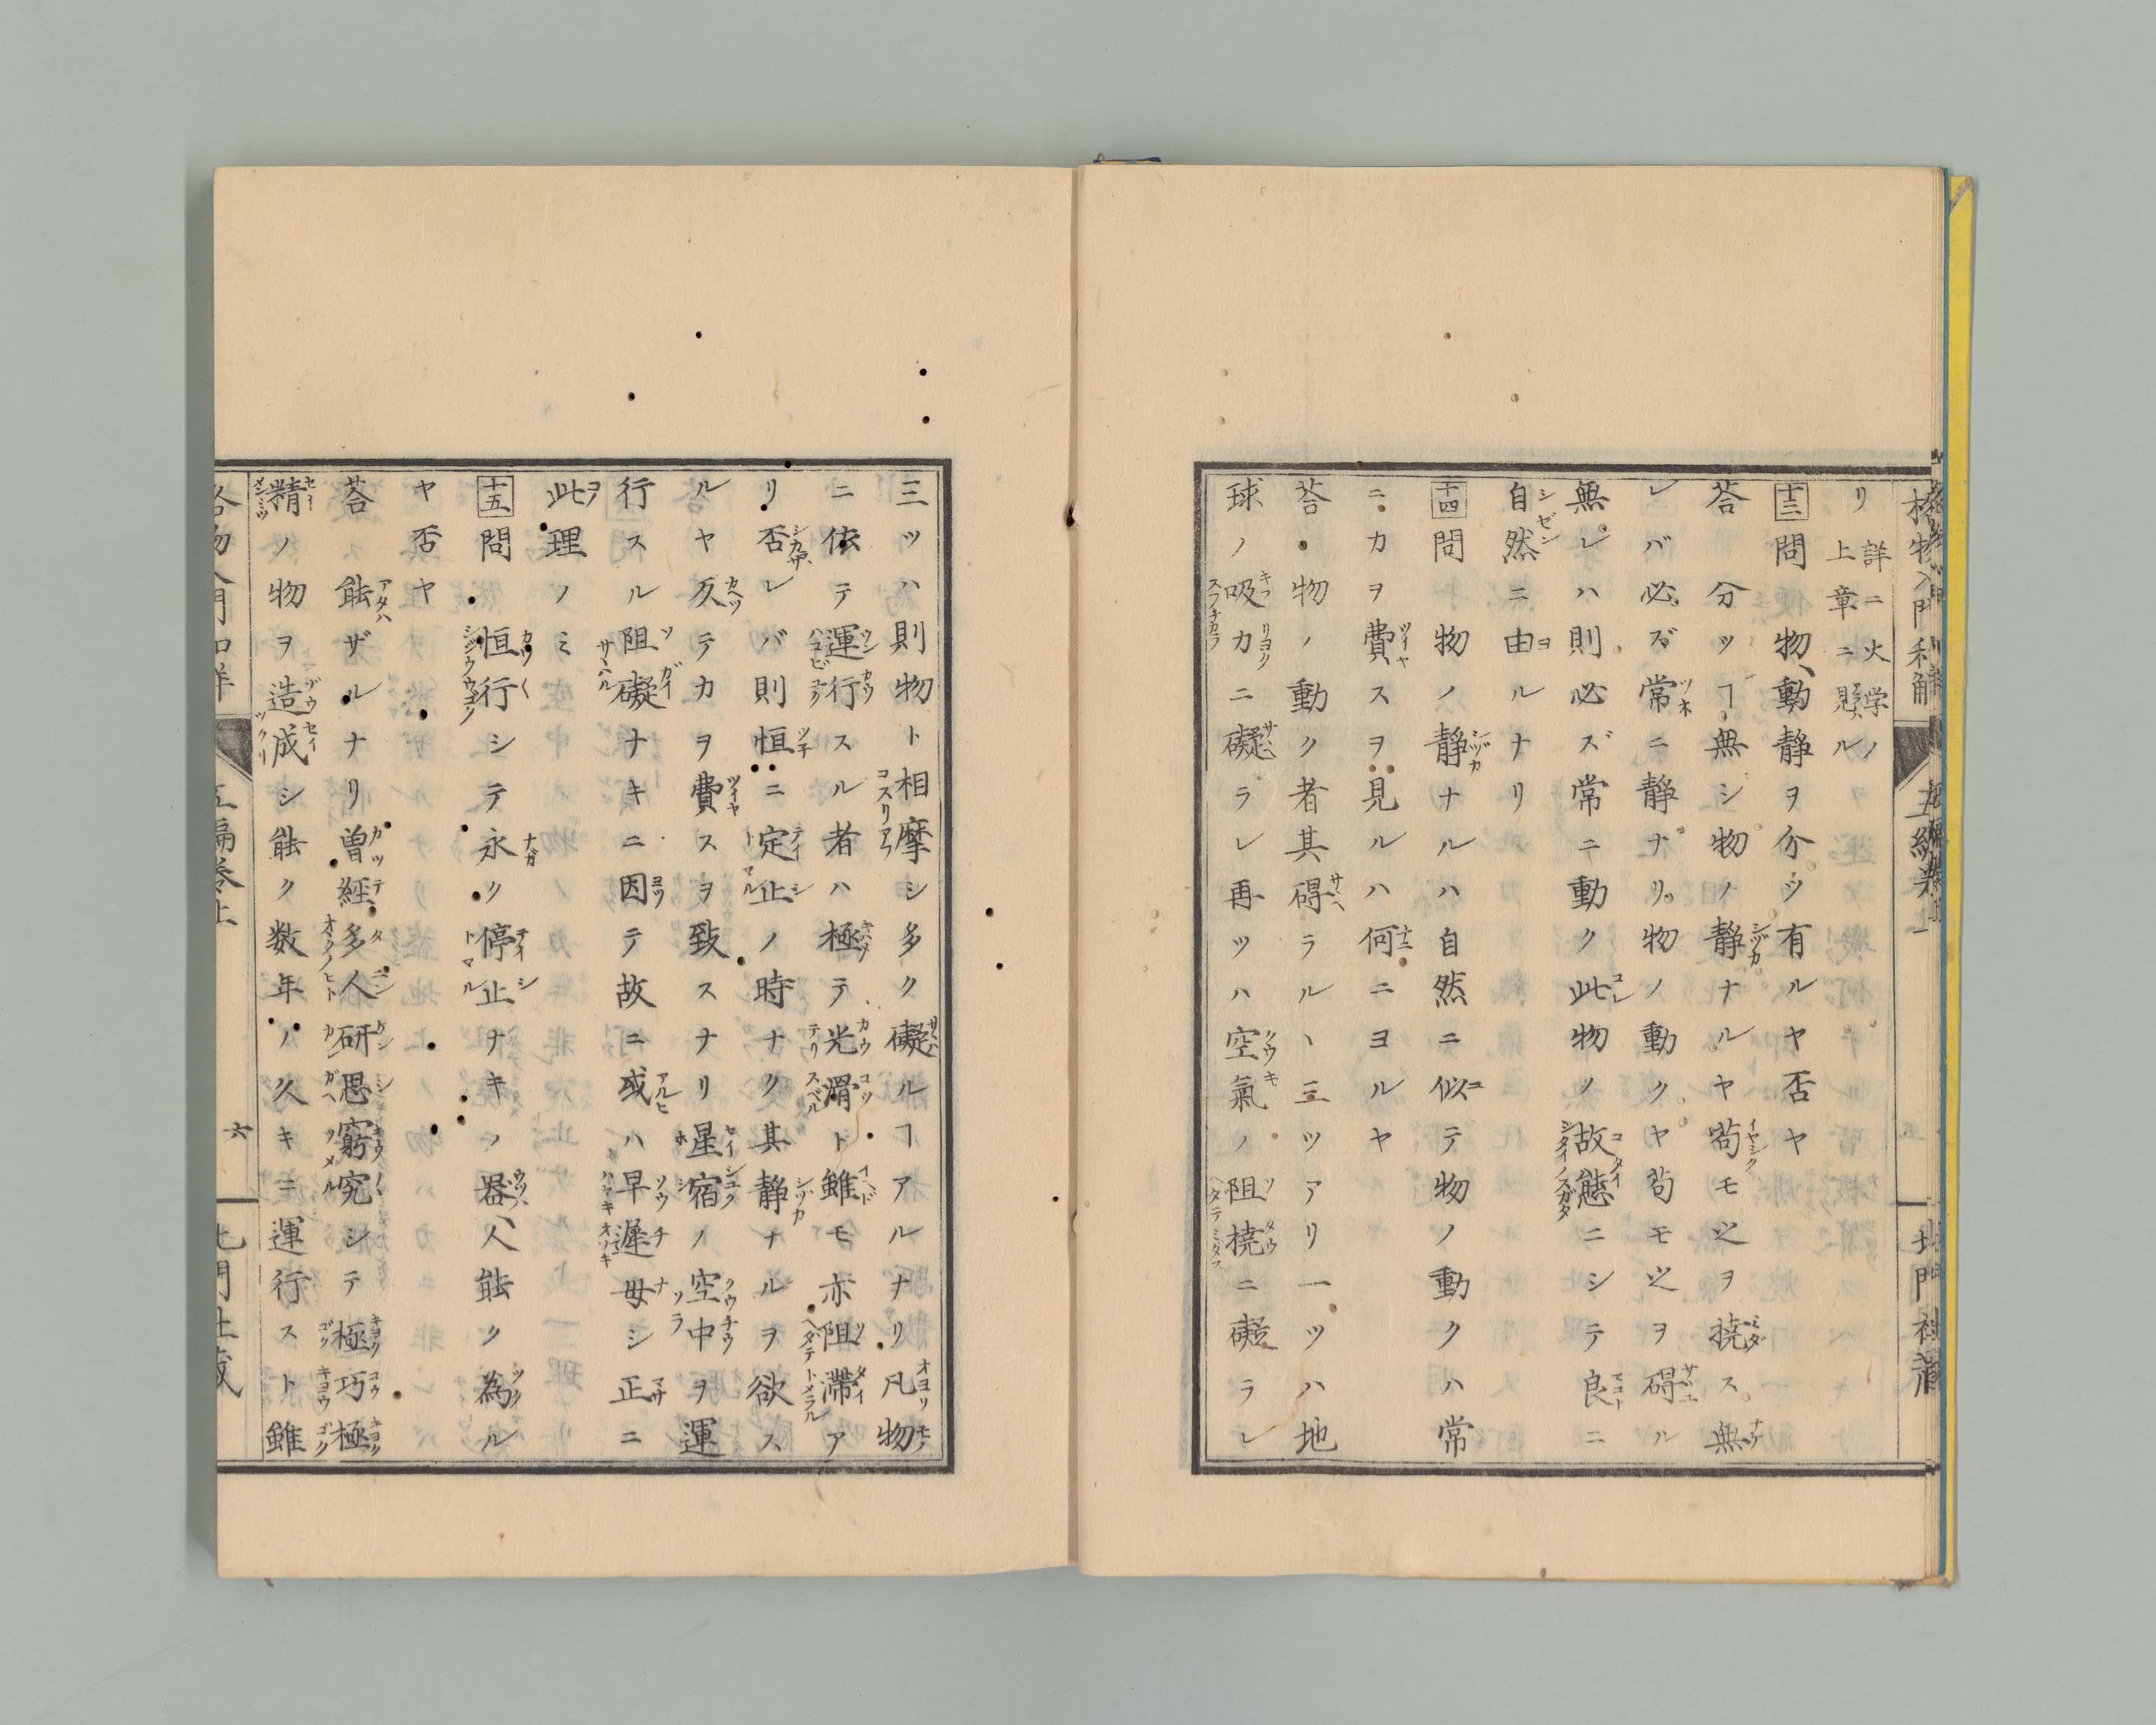 格物入門和解 五編巻上 北門社蔵
リ 詳ニ火学ノ上章ニ見ル
十三 問 物、動静ヲ分ツ有ルヤ否ヤ
荅 分ツヿ無シ物ノ静ナルヤ苟モ之ヲ撓ス無
レバ必ズ常ニ静ナリ物ノ動クヤ苟モ之ヲ碍ル
無レハ則必ズ常ニ動ク此物ノ故態ニシテ良ニ
自然ニ由ルナリ
十四 問 物ノ静ナルハ自然ニ似テ物ノ動クハ常
ニカヲ費スヲ見ルハ何ニヨルヤ
荅 物ノ動ク者其碍ラルヽ三ツアリ一ツハ地
球ノ吸力ニ礙ラレ再ツハ空氣ノ阻撓ニ礙ラレ
三ツハ則物ト相摩シ多ク礙ルヿアルナリ凡物
ニ依テ運行スル者ハ極テ光滑ト雖モ亦阻滯ア
リ否レバ則恒ニ定止ノ時ナク其静ナルヲ欲ス
ルヤ反テカヲ費スヲ致スナリ星宿ノ空中ヲ運
行スル阻礙ナキニ因テ故ニ或ハ早遲毋シ正ニ
此理ノミ
十五 問 恒行シテ永ク停止ナキノ器、人能ク為ル
ヤ否ヤ
荅 能ザルナリ曽經多人研思窮究シテ極巧極
精ノ物ヲ造成シ能ク数年ノ久キニ運行スト雖
格物入門和解 五編巻上 六 北門社蔵